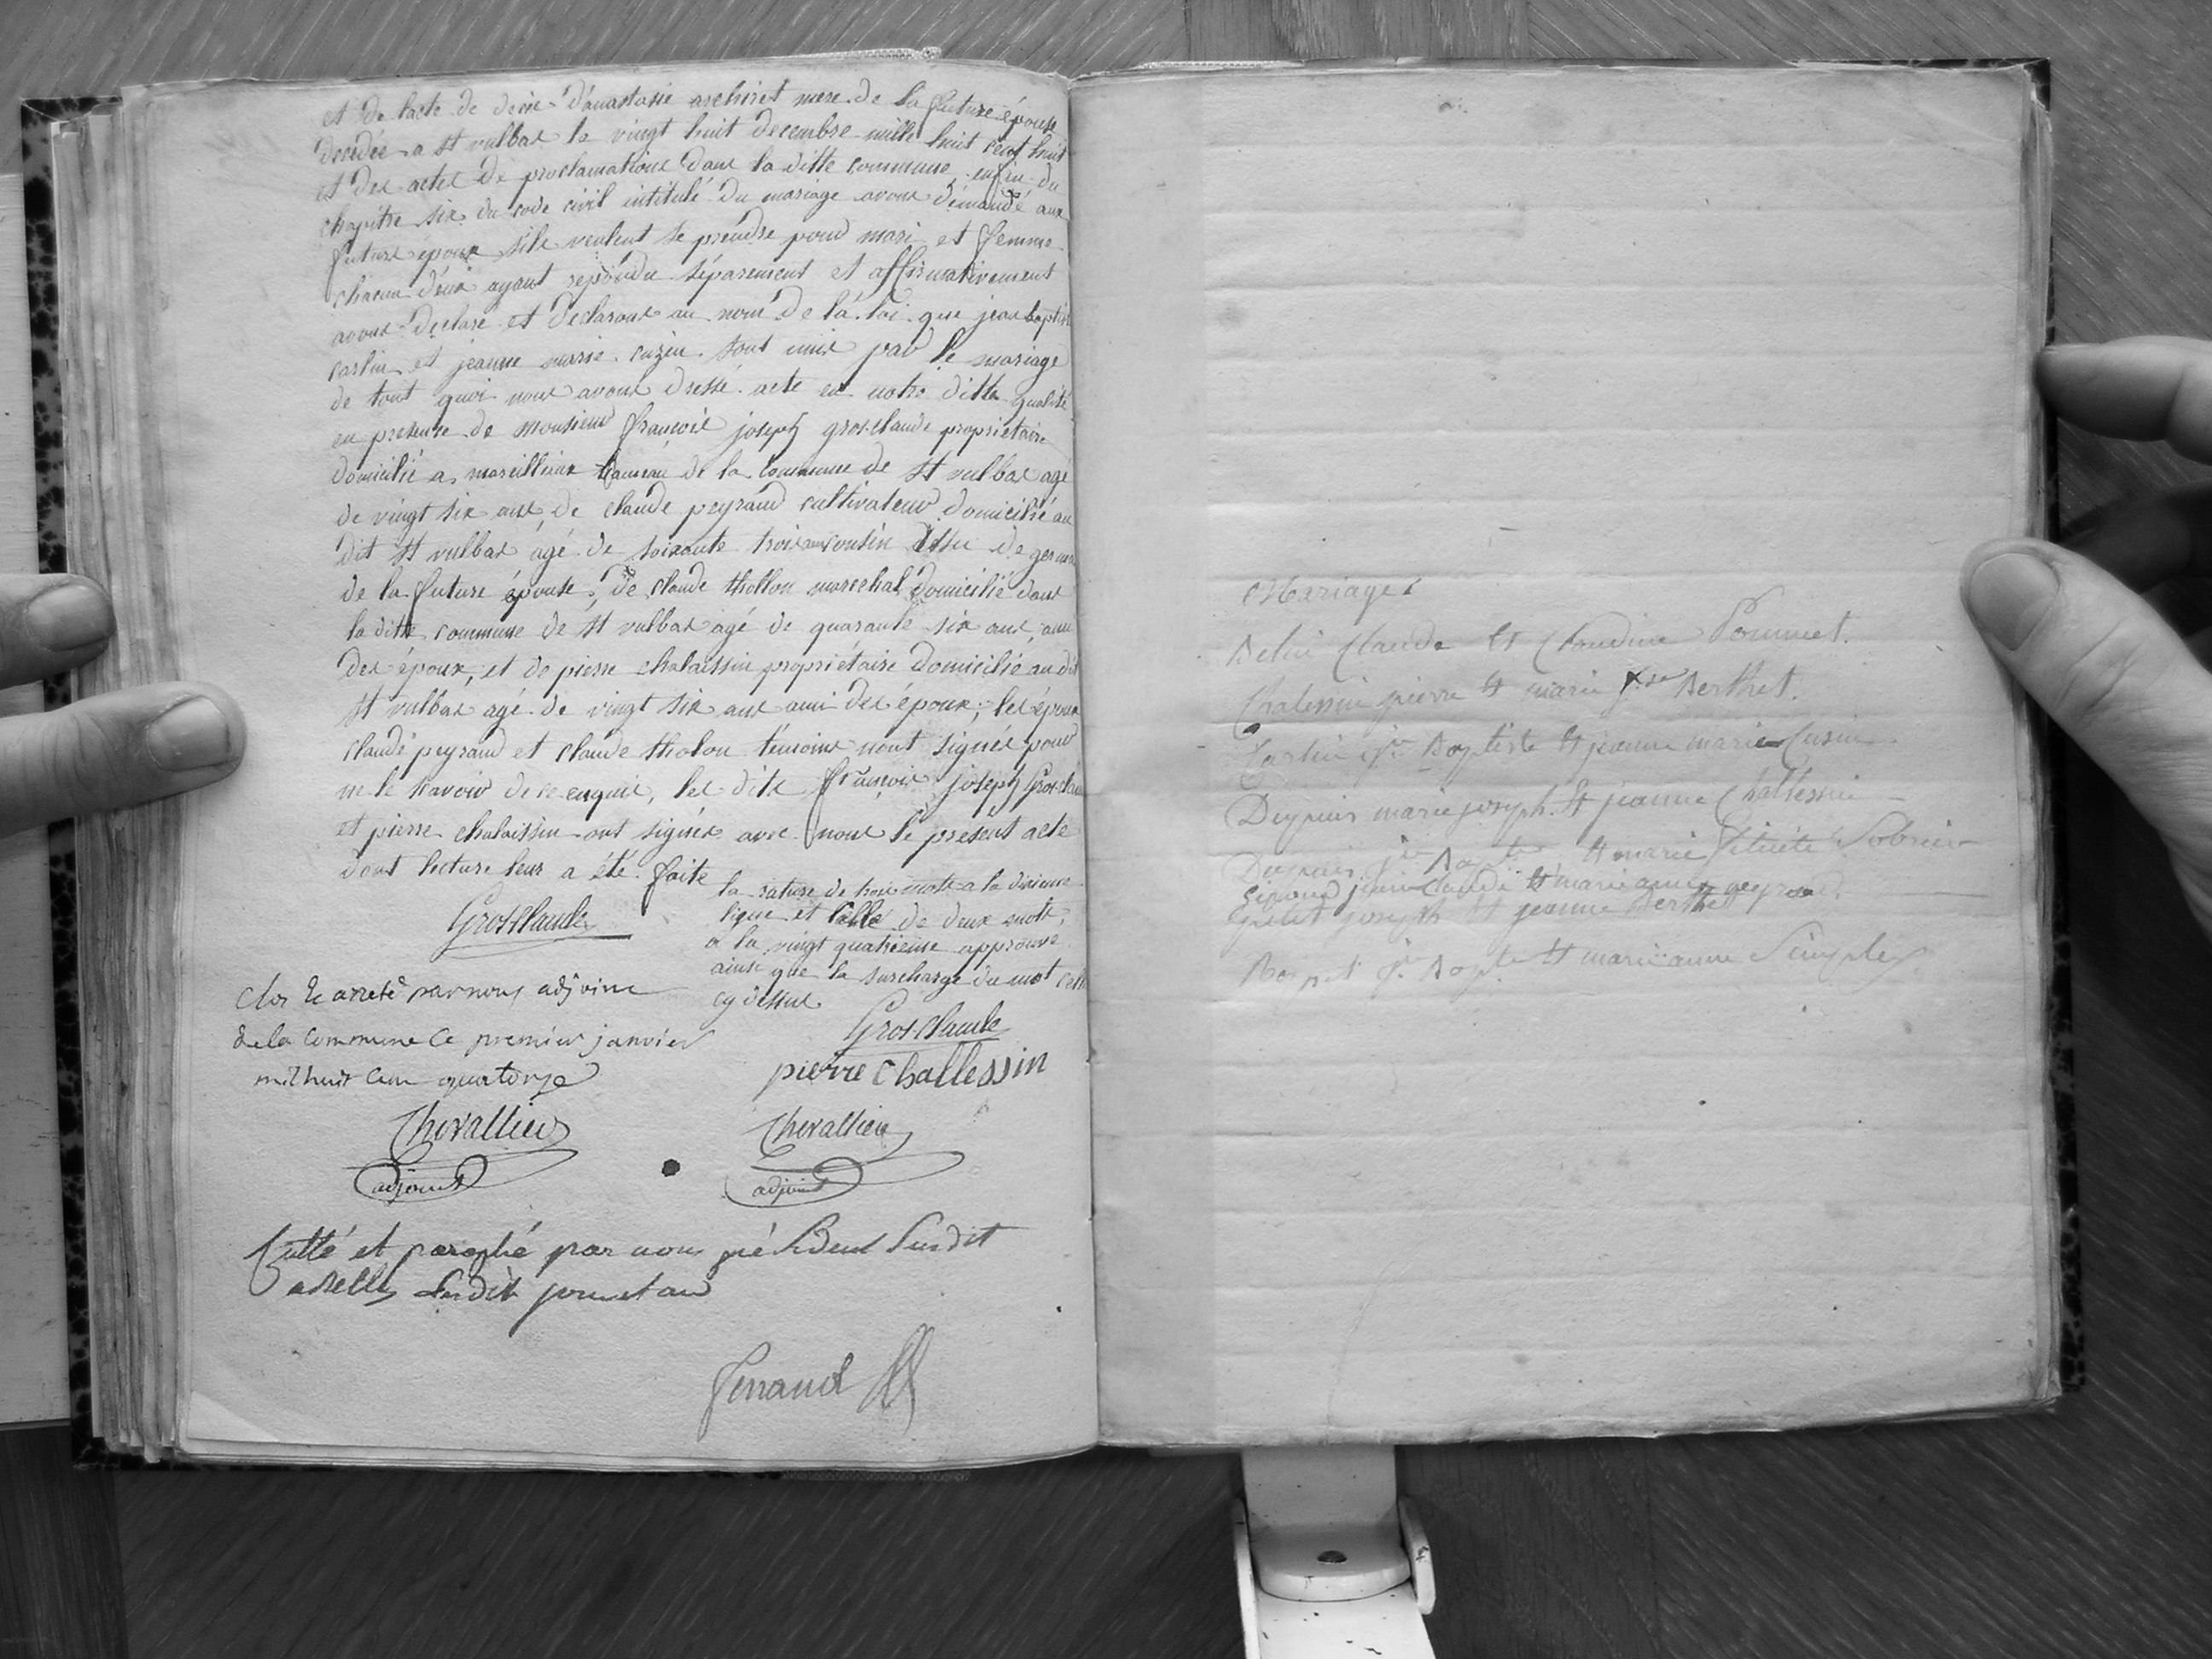 et de lacte de décè d'anastasie archiret mere de la future épouse
decedée a st vulbas le vingt huit decembre mille huit cent huit
et des actes de proclamations dans la ditte commune enfin du
chapitre six du code civil intitulé du mariage avons démandé aux
futurs époux sils veulent se prendre pour mari et femme
chacun d'eux ayant repondu séparement et affirmativement
avons declaré et declarons au nom de la loi que jean baptiste
carlin et jeanne marie cuzin sont unis par le mariage
de tout quoi nous avons dressé acte en notre ditte qualité
en presence de monsieur françois joseph gros-claude propriétaire
domicilié a marcillieux hameau de la commune de st vulbas agé
de vingt six ans, de claude peyraud cultivateur domicilié au
dit st vulbas agé de soixante trois ans cousin issu de germain
de la future épouse, de claude thollon marechal domicilié dans
la ditte commune de st vulbas agé de quarante six ans, ami
des époux, et de pierre chalaissin propriétaire domicilié au dit
st vulbas agé de vingt six ans ami des époux; les époux
claude peyraud et claude tholon témoins nont signés pour
ne le savoir de ce enquis, les dits françois joseph Gros-claude
et pierre chalaissin ont signés avec nous le present acte
dont lecture leur a été faite
la rature de trois mots a la dixieme
ligne et celle de deux mots
a la vingt quatrieme approuvé
ainsi que la surcharge du mot celle
cy dessus
Gros-Claude
Clos et arreté par nous adjoint
de la Commune Ce premier janvier
mil huit Cent quatorze
Gros-Claude
pierre Challessin
Chevallier
adjoint
Chevallier
adjoint
Cotté et paraphé par nous président Susdit
a Belley Susdit jour et an
Ferrand
Mariages
Belin Claude et Claudine Pommet.
Chalessin pierre et marie Berthet.
Carlin jn Baptiste et jeanne marie Cusin
Depuis marie joseph et jeanne Challessin
jn Bapte et marie
jean Claude et marie anne peyraud.
joseph et jeanne Berthet
jn Bapte et marie anne Simple